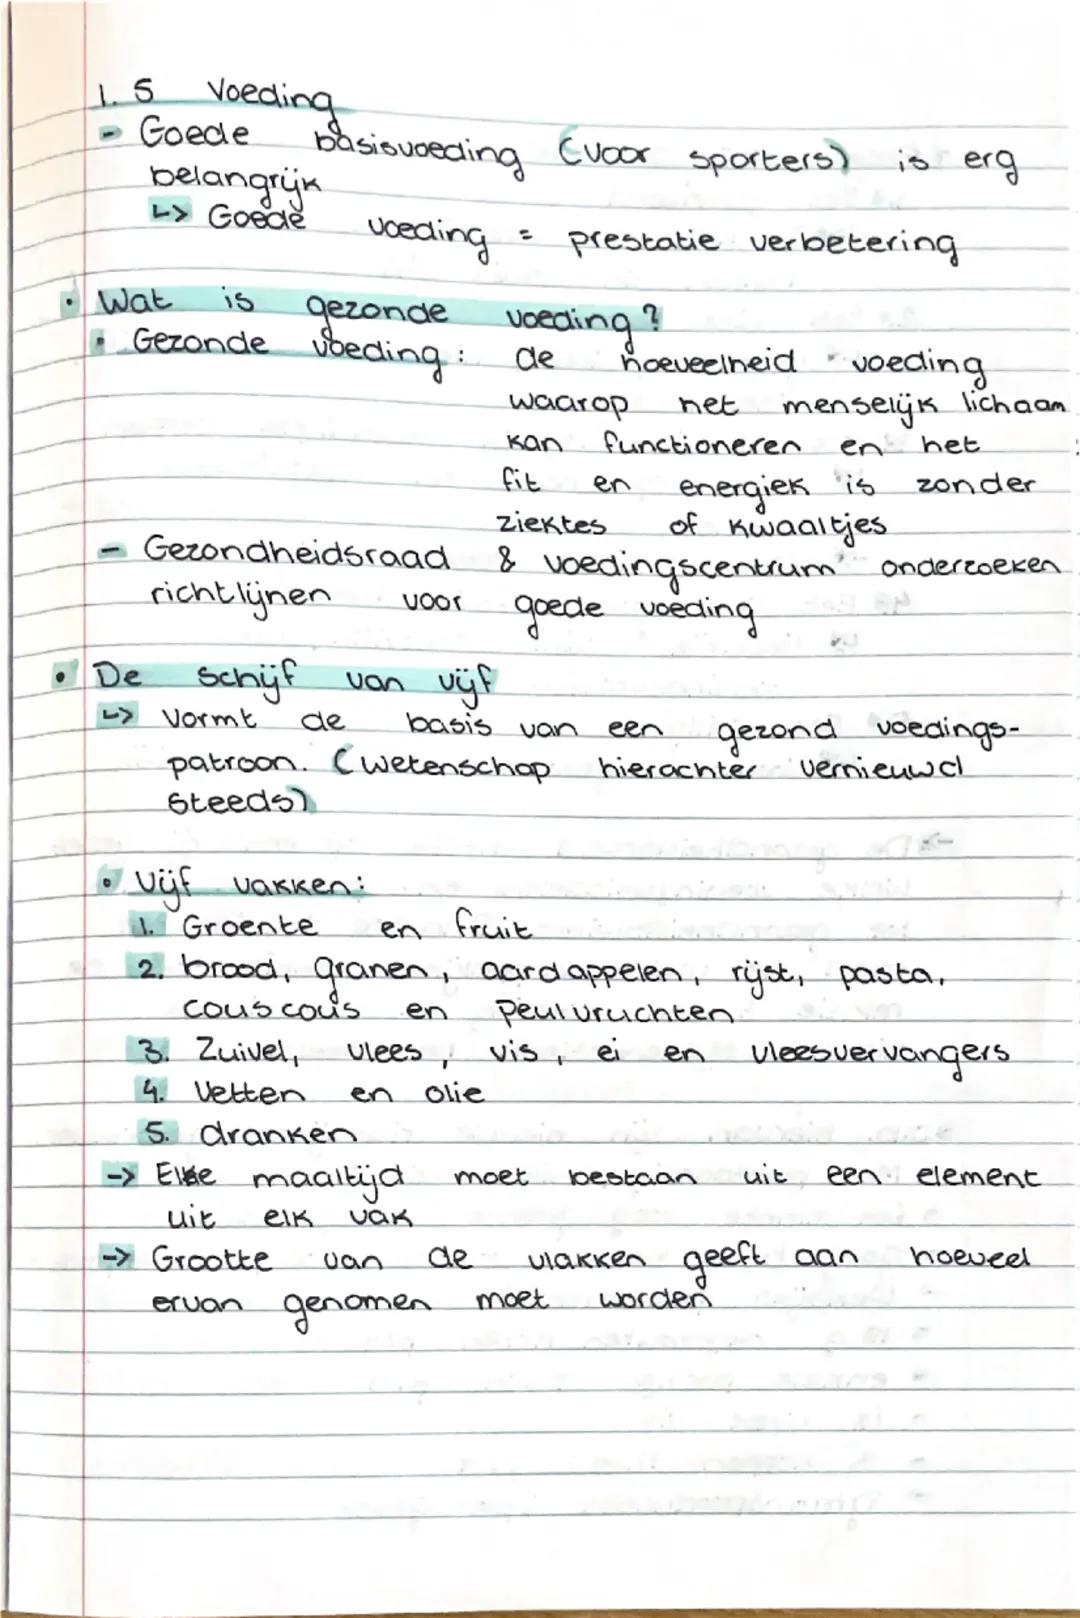 1.5 Voeding
- Goede basisvoeding (voor sporters) is erg
belangrijk
↳ Goede voeding = prestatie verbetering
• Wat is gezonde voeding?
• Gezonde voeding: de hoeveelheid voeding
waarop het menselijk lichaam
kan functioneren en het
fit en energiek is zonder
ziektes of kwaaltjes
- Gezondheidsraad & voedingscentrum onderzoeken
richtlijnen voor goede voeding
• De schijf van vijf
↳ Vormt de basis van een gezond voedings-
patroon. (wetenschap hierachter vernieuwd
steeds)
• Vijf vakken:
1. Groente en fruit
2. brood, granen, aardappelen, rijst, pasta,
couscous en Peulvruchten
3. Zuivel, vlees, vis, ei en vleesvervangers
4. Vetten en olie
5. dranken
-> Elke maaltijd moet bestaan uit een element
uit elk vak
-> Grootte van de vlakken geeft aan hoeveel
ervan genomen moet worden